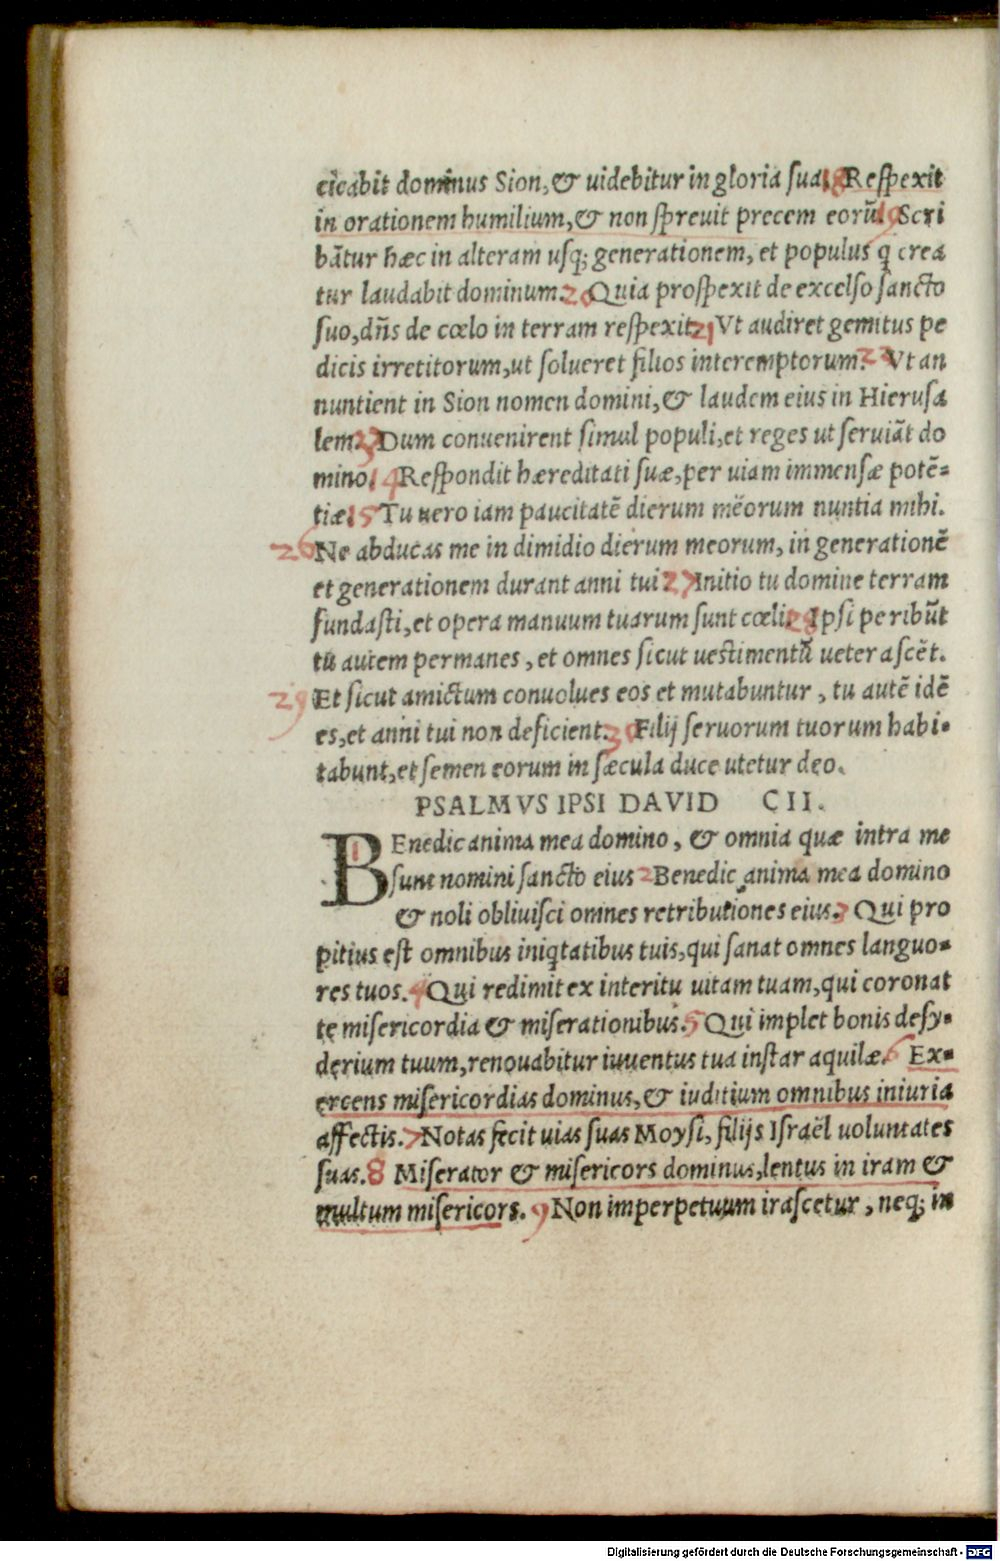 cicabit dominus Sion, & uidebitur in gloria sua. 18 Respexit
in orationem humilium, & non spreuit precem eorũ. 19 Scri
bãtur hæc in alteram usq; generationem, et populus q̃ crea
tur laudabit dominum. 20 Quia prospexit de excelso sancto
suo, dñs de cœlo in terram respexit. 21 Vt audiret gemitus pe
dicis irretitorum, ut solueret filios interemptorum. 22 Vt an
nuntient in Sion nomen domini, & laudem eius in Hierusa
lem. 23 Dum conuenirent simul populi, et reges ut seruiãt do
mino. 14 Respondit hæreditati suæ, per uiam immensæ potẽ=
tiæ. 15 Tu uero iam paucitatẽ dierum meorum nuntia mihi.
26 Ne abducas me in dimidio dierum meorum, in generationẽ
et generationem durant anni tui. 27 Initio tu domine terram
fundasti, et opera manuum tuarum sunt cœli. 28 Ipsi peribũt
tu autem permanes, et omnes sicut uestimentũ ueterascẽt.
29 Et sicut amictum conuolues eos et mutabuntur, tu autẽ idẽ
es, et anni tui non deficient. 30 Filij seruorum tuorum habi=
tabunt, et semen eorum in sæcula duce utetur deo.
PSALMVS IPSI DAVID CII.
1 BEnedic anima mea domino, & omnia quæ intra me
sunt nomini sancto eius 2 Benedic anima mea domino
& noli obliuisci omnes retributiones eius. 3 Qui pro
pitius est omnibus iniq̃tatibus tuis, qui sanat omnes languo=
res tuos. 4 Qui redimit ex interitu uitam tuam, qui coronat
te misericordia & miserationibus. 5 Qui implet bonis desy=
derium tuum, renouabitur iuuentus tua instar aquilæ. 6 Ex=
ercens misericordias dominus, & iuditium omnibus iniuria
affectis. 7 Notas fecit uias suas Moysi, filijs Israël uoluntates
suas. 8 Miserator & misericors dominus, lentus in iram &
multum misericors. 9 Non imperpetuum irascetur, neq; in
Digitalisierung gefördert durch die Deutsche Forschungsgemeinschaft - DFG